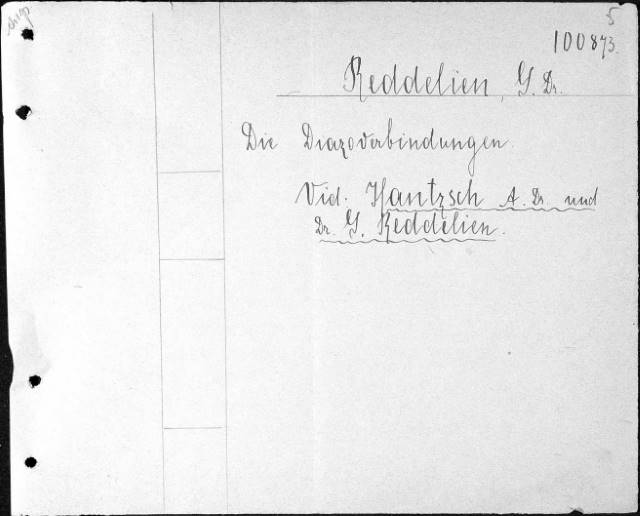 5
100873.
Reddelien, G. Dr.
Die Diazoverbindungen.
Vid. Hantzsch A. Dr. und
Dr. G. Reddelien.